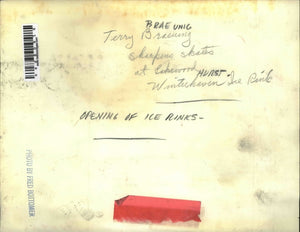 BRAEUNIG
Terry Braeunig
sharpens skates
at Lakewood HURST-
Winterhaven Ice Rink
OPENING OF ICE RINKS-
PHOTO BY FRED BOTTOMER